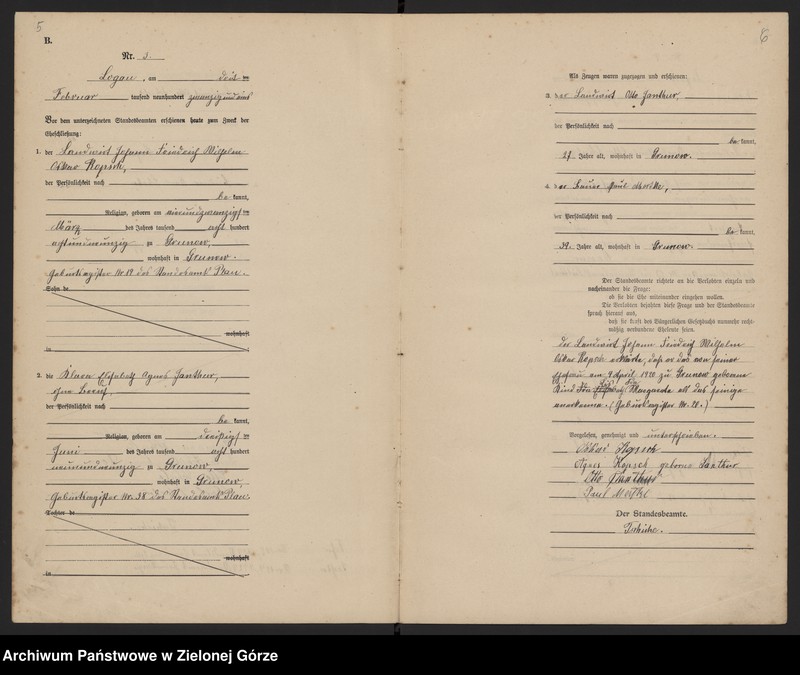 5
B.
Nr. 3.
Logau, am drei ten
Februar tausend neunhundert zwanzig und eins
Vor dem unterzeichneten Standesbeamten erschienen heute zum Zweck der
Eheschließung:
1. der Landwirt Johann Friedrich Wilhelm
Oskar Kopsch,
der Persönlichkeit nach
be kannt,
Religion, geboren am vierundzwanzigsten
März des Jahres tausend acht hundert
achtundneunzig zu Grunow,
wohnhaft in Grunow.
Geburtsregister Nr. des Standesamts Plau.
Sohn de
wohnhaft
in
2. die Klara Elisabeth Agnes Janthur,
ohne Beruf,
der Persönlichkeit nach
be kannt,
Religion, geboren am dreißigsten
Juni des Jahres tausend acht hundert
neunundneunzig zu Grunow,
wohnhaft in Grunow,
Geburtsregister Nr. 38 des Standesamts Plau.
Tochter de
wohnhaft
in
6
Als Zeugen waren zugezogen und erschienen:
3. der Landwirt Otto Janthur,
der Persönlichkeit nach
be kannt,
27 Jahre alt, wohnhaft in Grunow.
4. der Bauer Paul
der Persönlichkeit nach
be kannt,
39 Jahre alt, wohnhaft in Grunow.
Der Standesbeamte richtete an die Verlobten einzeln und
nacheinander die Frage:
ob sie die Ehe miteinander eingehen wollen.
Die Verlobten bejahten diese Frage und der Standesbeamte
sprach hierauf aus,
daß sie kraft des Bürgerlichen Gesetzbuchs nunmehr recht-
mäßig verbundene Eheleute seien.
Der Landwirt Johann Friedrich Wilhelm
Oskar Kopsch erklärte, daß er das von seiner
Ehefrau am 9 April 1920 zu Grunow geborene
Kind Margarete als das seinige
anerkenne. (Geburtsregister Nr. )
Vorgelesen, genehmigt und unterschrieben.
Oskar Kopsch
Agnes Kopsch geborene Janthur
Otto Janthur
Paul
Der Standesbeamte.
Archiwum Państwowe w Zielonej Górze